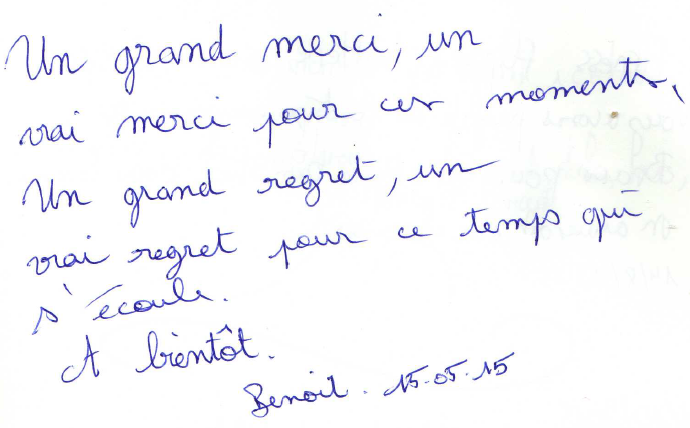 Un grand merci, un
vrai merci pour ces moments,
Un grand regret, un
vrai regret pour ce temps qui
s'écoule.
A bientôt.
Benoit. 15-05-15